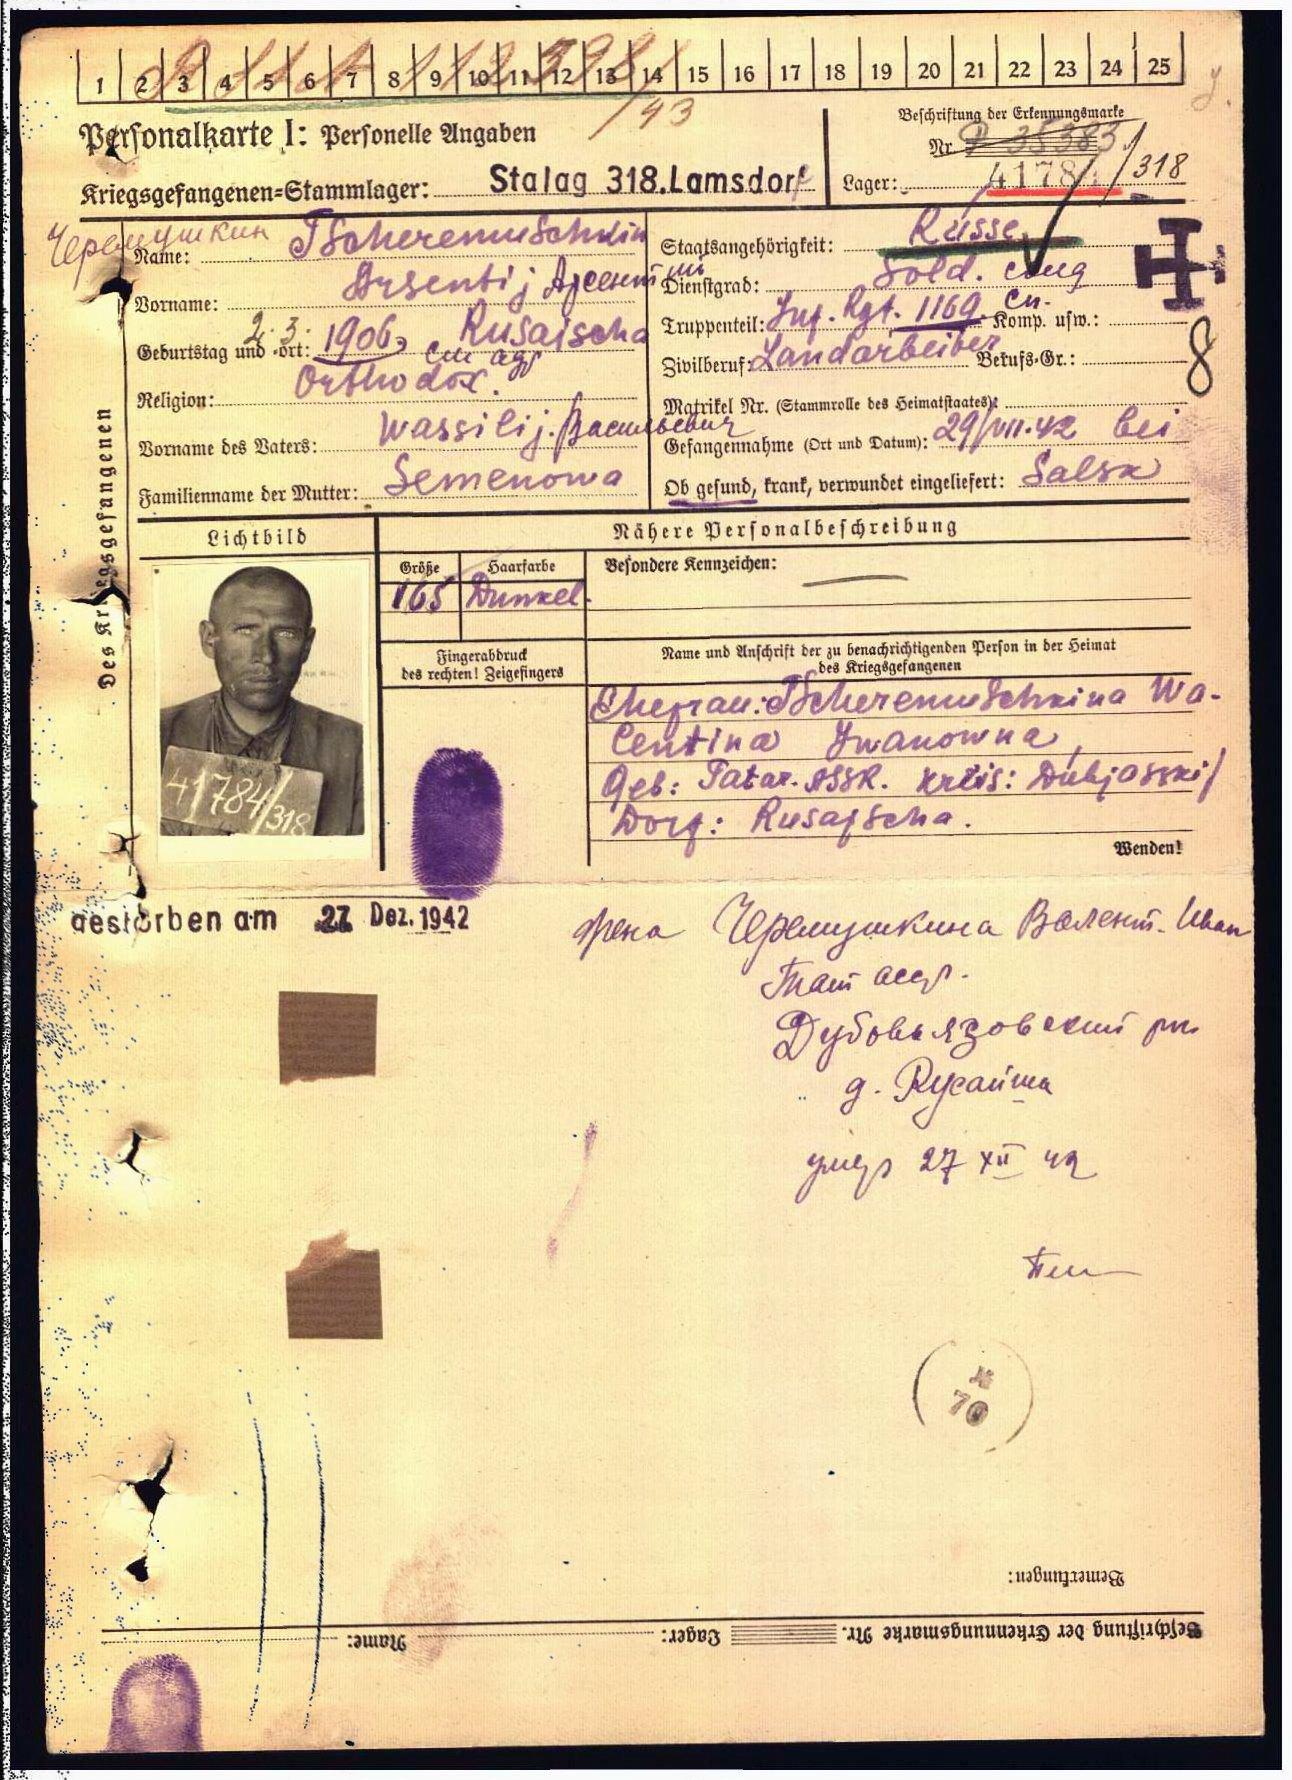 1 2 3 4 5 6 7 8 9 10 11 12 13 14 15 16 17 18 19 20 21 22 23 24 25
/43
Personalkarte I: Personelle Angaben
Beschriftung der Erkennungsmarke
Nr. P 35383
Kriegsgefangenen=Stammlager: Stalag 318. Lamsdorf
Lager: 41784/318
Черемушкин
Name: Tscheremuschkin
Staatsangehörigkeit: Russe
Vorname: Arsentij Арсентий
Dienstgrad: Sold.
Truppenteil: Inf. Rgt. 1169 сп. Komp. usw.:
Geburtstag und -ort: 2.3. 1906, Rusajscha
Zivilberuf: Landarbeiter Berufs-Gr.:
8
Religion: Orthodox.
Matrikel Nr. (Stammrolle des Heimatstaates):
Vorname des Vaters: Wassilij. Васильевич
Gefangennahme (Ort und Datum): 29/VII.42 bei
Familienname der Mutter: Semenowa
Ob gesund, krank, verwundet eingeliefert: Salsk
Des Kriegsgefangenen
Lichtbild
Nähere Personalbeschreibung
Größe
Haarfarbe
Besondere Kennzeichen:
165
Dunkel.
Fingerabdruck
des rechten! Zeigefingers
Name und Anschrift der zu benachrichtigenden Person in der Heimat
des Kriegsgefangenen
Ehefrau: Tscheremuschkina Wa-
lentina Iwanowna,
Geb: Tatar. ASSR. Kreis: Dubjasski/
Dorf: Rusajscha.
41784/318
Wenden!
gestorben am 27. Dez. 1942
жена Черемушкина Валент. Иван
Тат асср.
Дубовьязовский рн
д. Русайша
умер 27 XII 42
70
Bemerkungen:
Beschriftung der Erkennungsmarke Nr. Lager: Name: